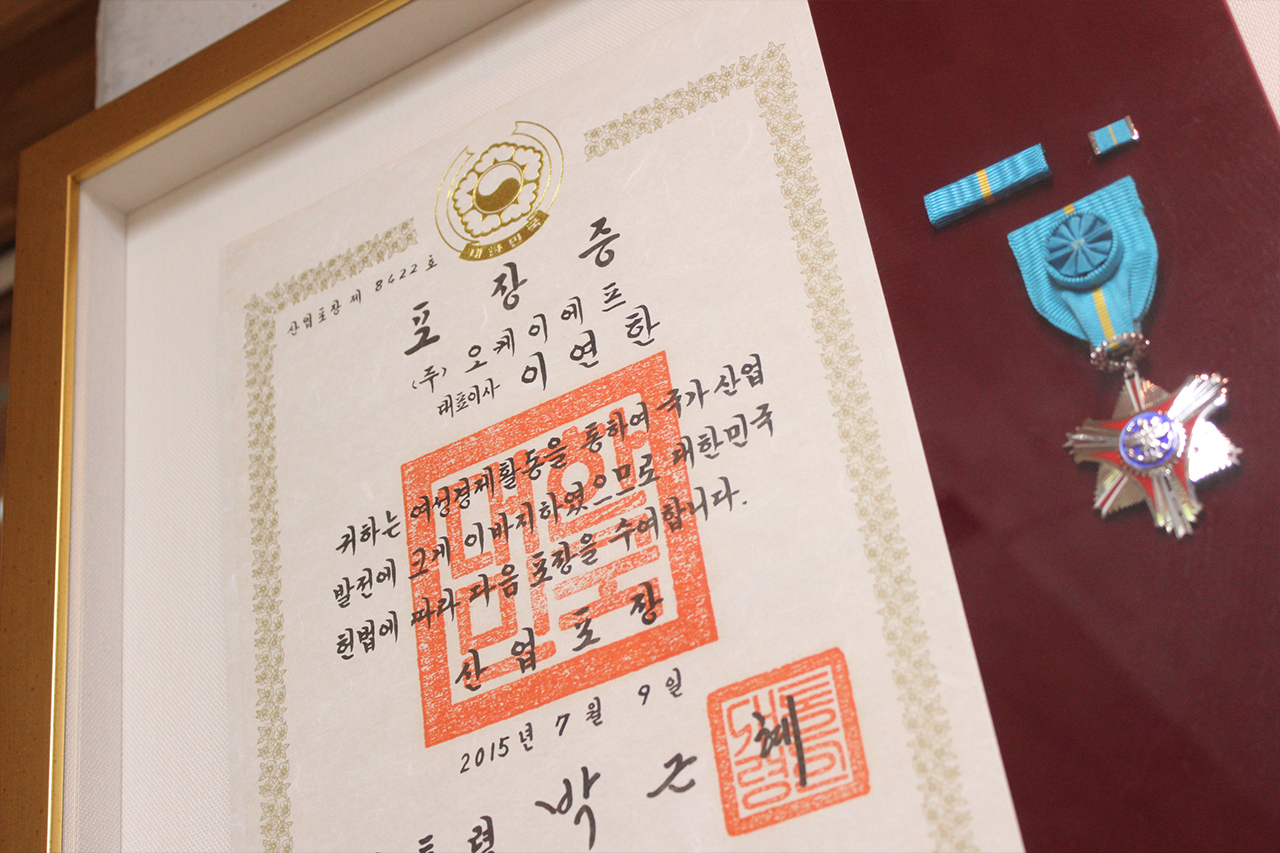 대한민국
산업포장 제 8422 호
포장증
(주) 오케이에프
대표이사 이연한
귀하는 여성경제활동을 통하여 국가산업
발전에 크게 이바지하였으므로 대한민국
헌법에 따라 다음 포장을 수여합니다.
산업포장
2015년 7월 9일
통령 박근혜